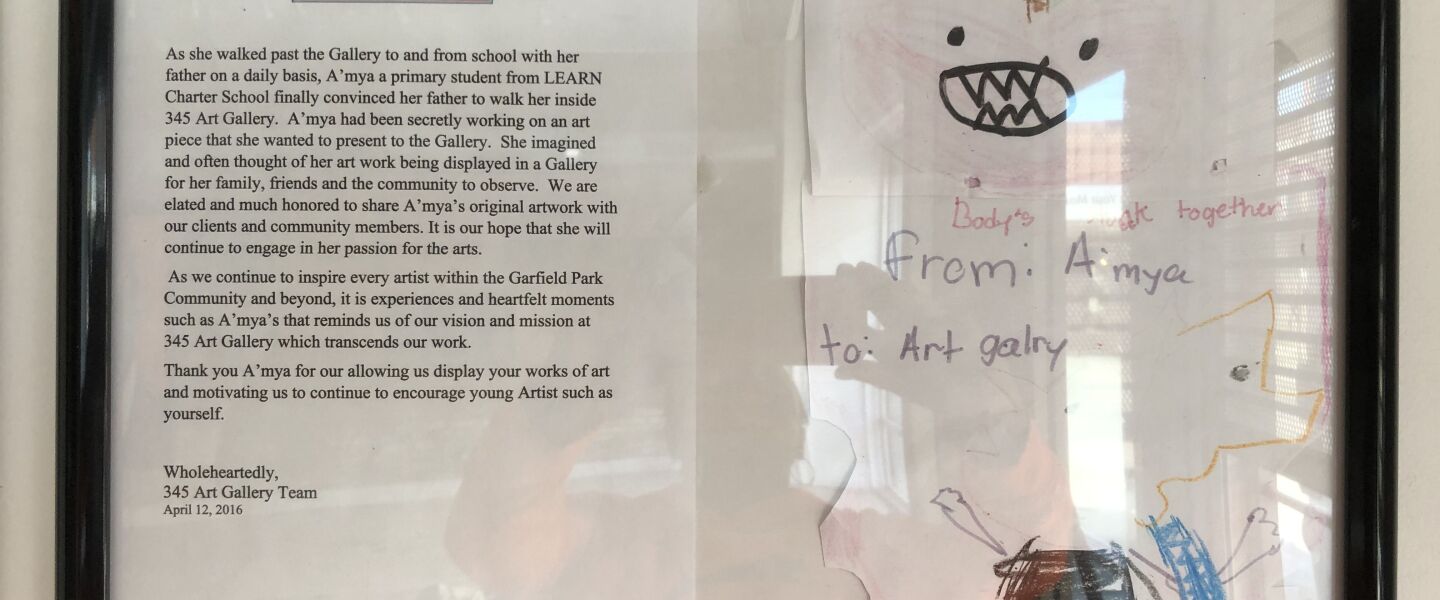 As she walked past the Gallery to and from school with her
father on a daily basis, A’mya a primary student from LEARN
Charter School finally convinced her father to walk her inside
345 Art Gallery.  A’mya had been secretly working on an art
piece that she wanted to present to the Gallery.  She imagined
and often thought of her art work being displayed in a Gallery
for her family, friends and the community to observe.  We are
elated and much honored to share A’mya’s original artwork with
our clients and community members. It is our hope that she will
continue to engage in her passion for the arts.
As we continue to inspire every artist within the Garfield Park
Community and beyond, it is experiences and heartfelt moments
such as A’mya’s that reminds us of our vision and mission at
345 Art Gallery which transcends our work.
Thank you A’mya for our allowing us display your works of art
and motivating us to continue to encourage young Artist such as
yourself.
Wholeheartedly,
345 Art Gallery Team
April 12, 2016
Body's together
From: A'mya
to: Art galry